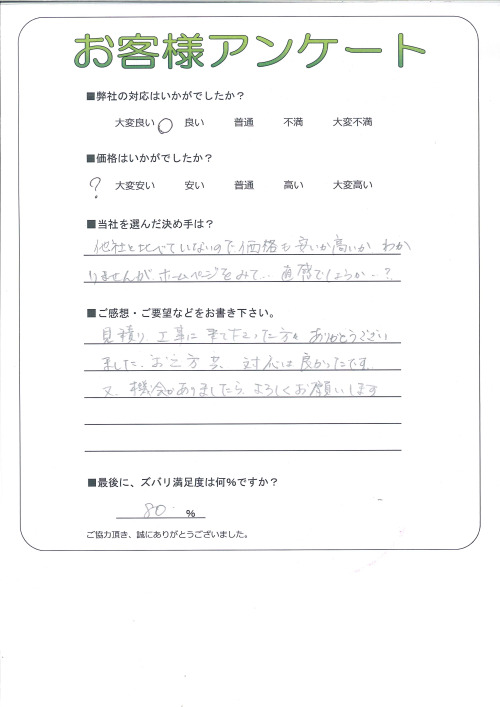 お客様アンケート
■弊社の対応はいかがでしたか？
大変良い ○ 良い 普通 不満 大変不満
■価格はいかがでしたか？
? 大変安い 安い 普通 高い 大変高い
■当社を選んだ決め手は？
他社と比べていないので価格も安いか高いか わか
りませんが ホームページをみて… 直感でしょうか..?
■ご感想・ご要望などをお書き下さい。
見積り、工事に来て下さった方々 ありがとうござい
ました。お二方共 対応は良かったです。
又、機会がありましたら、よろしくお願いします
■最後に、ズバリ満足度は何%ですか？
80 %
ご協力頂き、誠にありがとうございました。